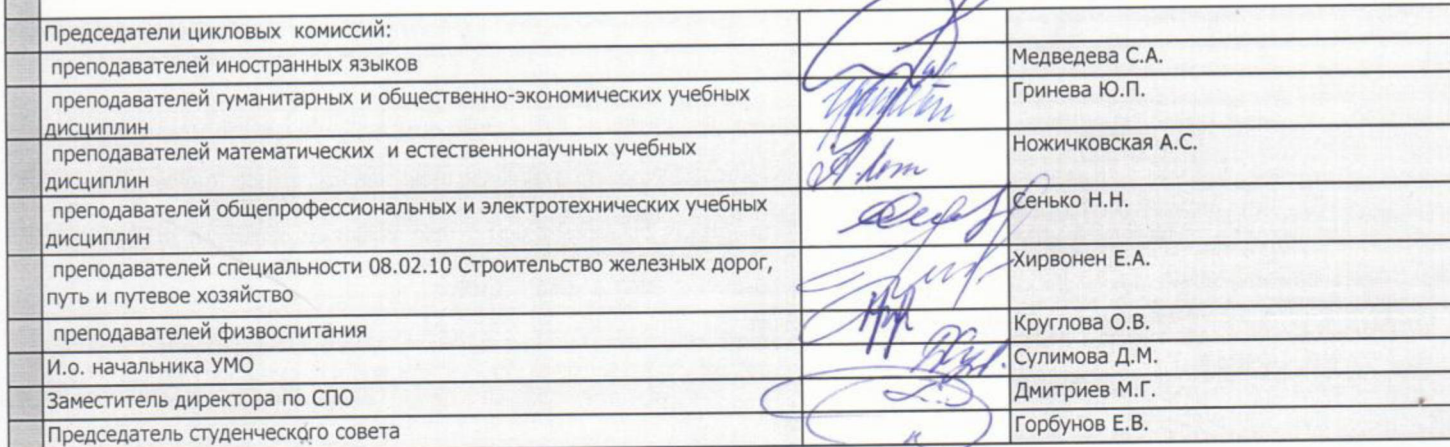 Председатели цикловых комиссий:
преподавателей иностранных языков Медведева С.А.
преподавателей гуманитарных и общественно-экономических учебных Гринева Ю.П.
дисциплин
преподавателей математических и естественнонаучных учебных Ножичковская А.С.
дисциплин
преподавателей общепрофессиональных и электротехнических учебных Сенько Н.Н.
дисциплин
преподавателей специальности 08.02.10 Строительство железных дорог, Хирвонен Е.А.
путь и путевое хозяйство
преподавателей физвоспитания Круглова О.В.
И.о. начальника УМО Сулимова Д.М.
Заместитель директора по СПО Дмитриев М.Г.
Председатель студенческого совета Горбунов Е.В.